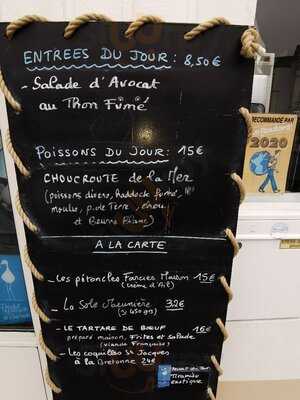 ENTREES DU JOUR : 8,50€
- Salade d'Avocat
au Thon Fumé
POISSONS DU JOUR : 15€
CHOUCROUTE de la Mer
(poissons divers, haddock fumé,
moules, p. de Terre, chou
et Beurre Blanc)
A LA CARTE
- Les pétoncles Farcies Maison 15€
(Crème d'Ail)
- La Sole Meunière 32€
- LE TARTARE DE BŒUF 16€
préparé maison, Frites et salade
(viande Française)
- Les coquilles St Jacques
à la Bretonne 24€
Tiramisu
exotique
RECOMMANDÉ PAR
le Routard
2020